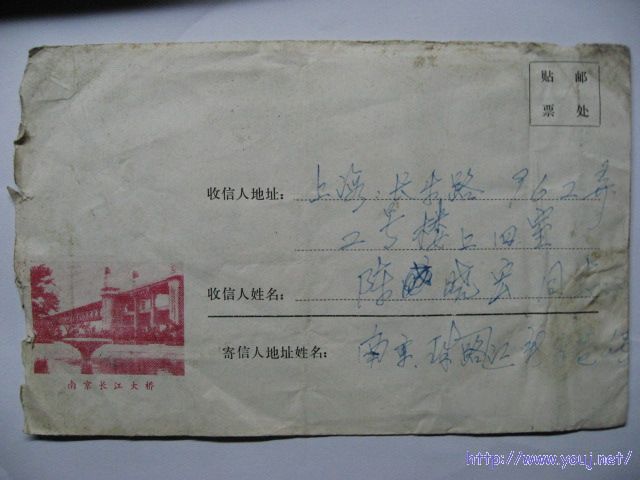 贴 邮
票 处
收信人地址：上海.长乐路 762弄
2号楼上 室
收信人姓名：陈 晓宏同志
寄信人地址姓名：南京.珠 江
南京长江大桥
http://www.youj.net/